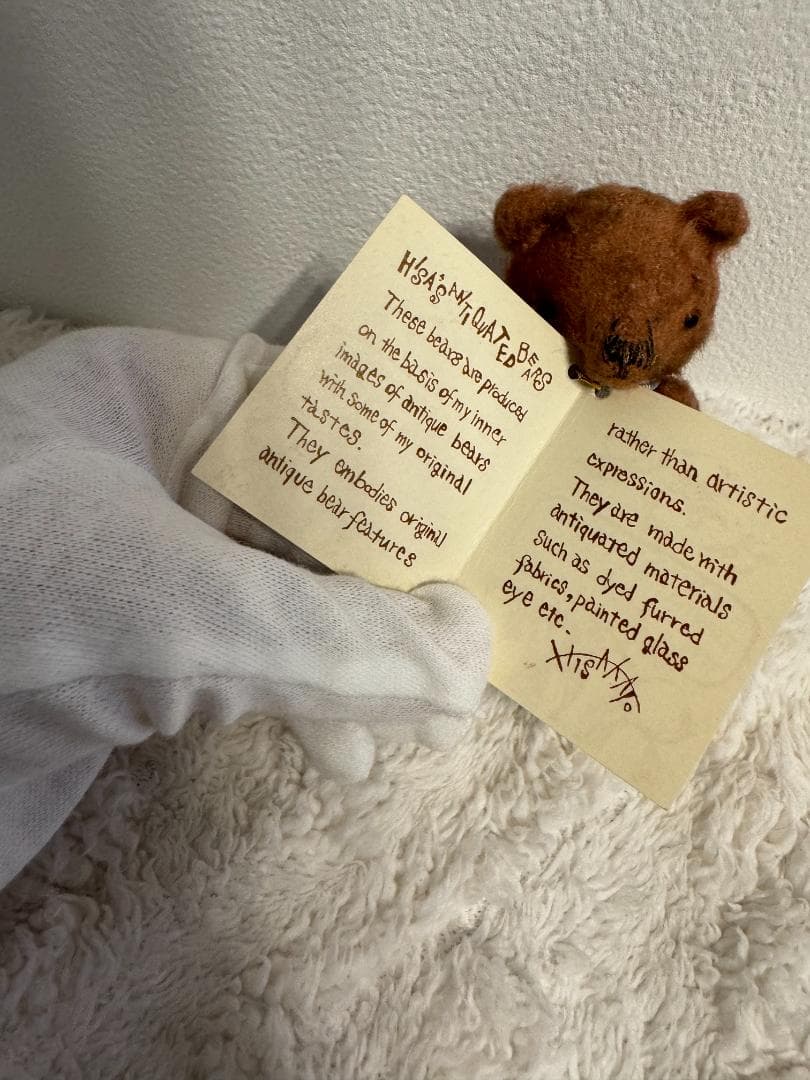 HISA'S ANTIQUATED BEARS
These bears are produced
on the basis of my inner
images of antique bears
with some of my original
tastes.
They embodies original
antique bear features
rather than artistic
expressions.
They are made with
antiquared materials
such as dyed furred
fabrics, painted glass
eye etc.